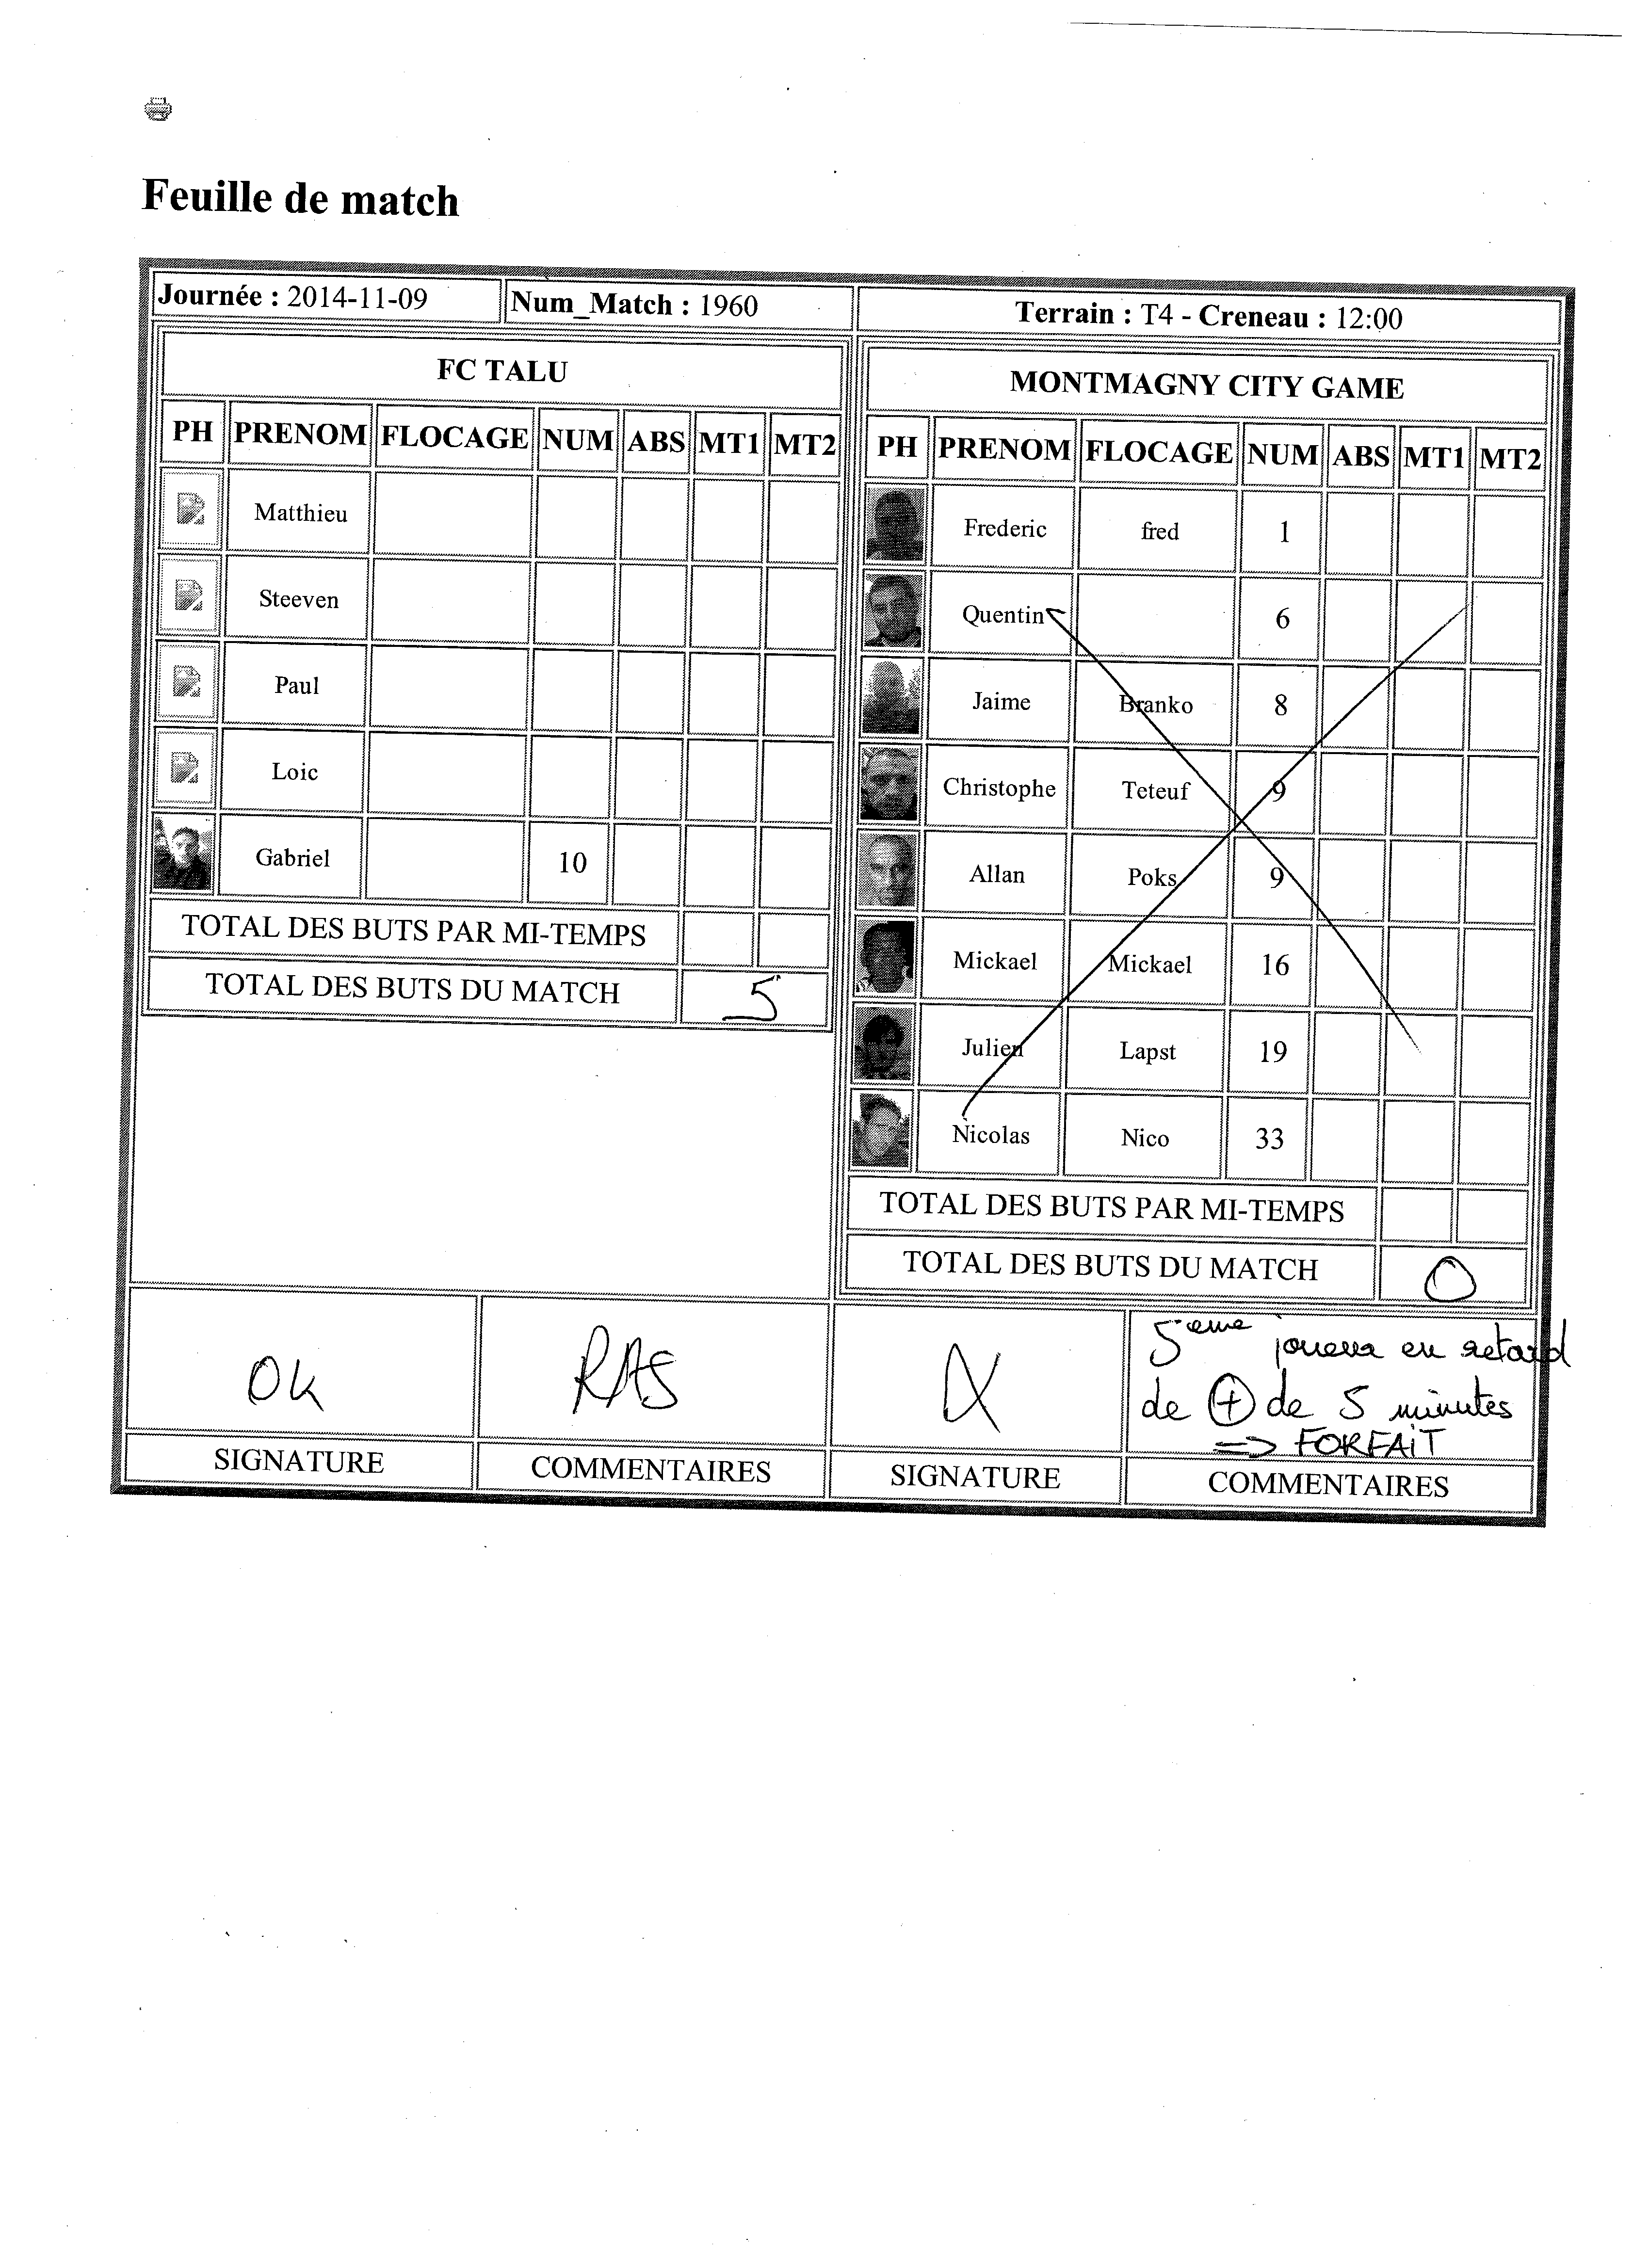 Feuille de match
Journée : 2014-11-09 Num_Match : 1960 Terrain : T4 - Creneau : 12:00
FC TALU
PH PRENOM FLOCAGE NUM ABS MT1 MT2
Matthieu
Steeven
Paul
Loic
Gabriel 10
TOTAL DES BUTS PAR MI-TEMPS
TOTAL DES BUTS DU MATCH 5
MONTMAGNY CITY GAME
PH PRENOM FLOCAGE NUM ABS MT1 MT2
Frederic fred 1
Quentin 6
Jaime Branko 8
Christophe Teteuf 9
Allan Poks 9
Mickael Mickael 16
Julien Lapst 19
Nicolas Nico 33
TOTAL DES BUTS PAR MI-TEMPS
TOTAL DES BUTS DU MATCH 0
Ok
SIGNATURE
RAS
COMMENTAIRES
SIGNATURE
5eme joueur en retard
de + de 5 minutes
=> FORFAIT
COMMENTAIRES